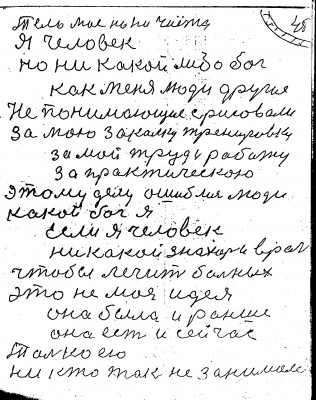 48
Тело мое на ни чиста
Я человек
но ни какой либо бог
как меня люди другие
не понимающие срисовали
за мою закалку тренировку
за мой труд работу
за практическою
этому делу ошиблися люди
какой бог я
если я человек
никакой знахарь врач
чтобы лечит балных
это не моя идея
она была и ранше
она ест и сейчас
толко ею
ни кто так не занимале